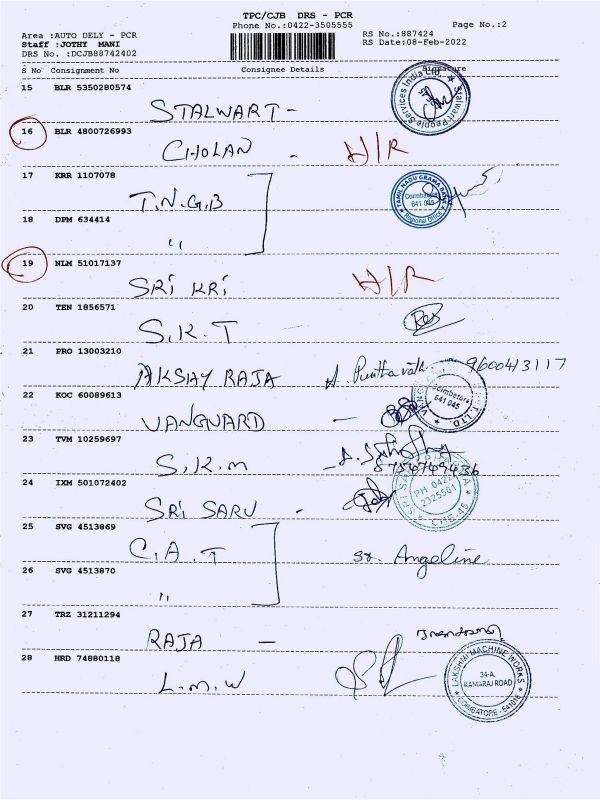 TPC/CJB DRS - PCR
Phone No.:0422-3505555
Page No.:2
Area :AUTO DELY - PCR
RS No.:887424
Staff :JOTHY MANI
RS Date:08-Feb-2022
DRS No. :DCJB88742402
S No Consignment No Consignee Details Signature
15 BLR 5350280574
STALWART -
Stalwart People Services India Ltd.
16 BLR 4800726993
CHOLAN - H/R
17 KRR 1107078
T.N.G.B
TAMIL NADU GRAMA BANK
Coimbatore
641 045
Regional Office
18 DPM 634414
"
19 NLM 51017137
SRI KRI H/R
20 TEN 1856571
S.K.T
21 PRO 13003210
AKSHAY RAJA 9600413117
22 KOC 60089613
VANGUARD -
Coimbatore
641 045
23 TVM 10259697
S.K.M
8754749436
24 IXM 501072402
SRI SARU -
PH 0422
2325581
CBE-45
25 SVG 4513869
C.A.T Sr. Angeline
26 SVG 4513870
"
27 TRZ 31211294
RAJA -
28 HRD 74880118
L.M.W
LAKSHMI MACHINE WORKS
34-A,
KAMARAJ ROAD
COIMBATORE - 641018